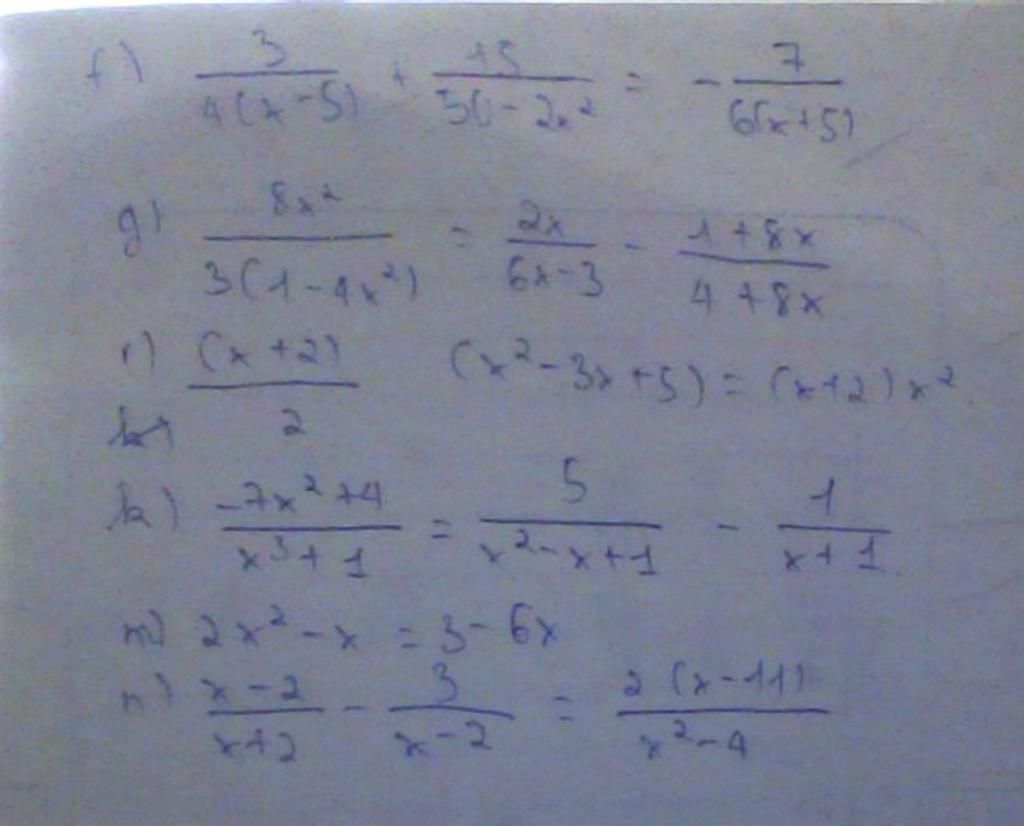 f) 3/4(x-5) + 15/50-2x² = -7/6(x+5)
g) 8x²/3(1-4x²) = 2x/6x-3 - 1+8x/4+8x
i) (x+2)/2 (x²-3x+5) = (x+2)x²
k) -7x²+4/x³+1 = 5/x²-x+1 - 1/x+1
m) 2x²-x = 3-6x
n) x-2/x+2 - 3/x-2 = 2(x-11)/x²-4